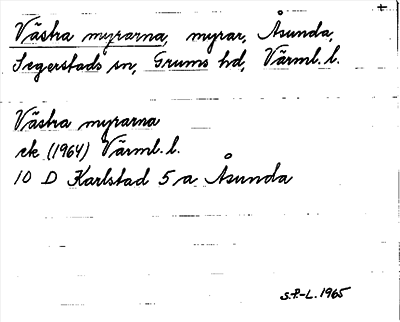 +
Västra myrarna, myrar, Åsunda,
Segerstads sn, Grums hd, Värml. l.
Västra myrarna
ek (1964) Värml. l.
10 D Karlstad 5 a Åsunda
S.P.-L. 1965